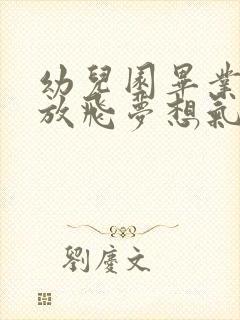 幼兒園畢業
放飛夢想氣
劉慶文